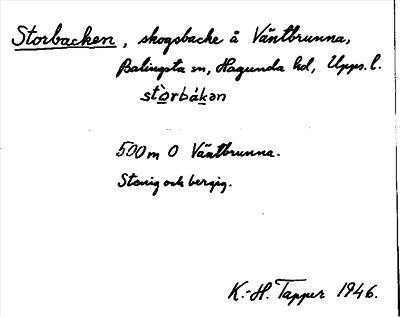 Storbacken, skogsbacke å Väntbrunna,
Balingsta sn, Hagunda hd, Upps. l.
stòrbákan
500 m O Väntbrunna.
Stenig och bergig.
K.-H. Tapper 1946.